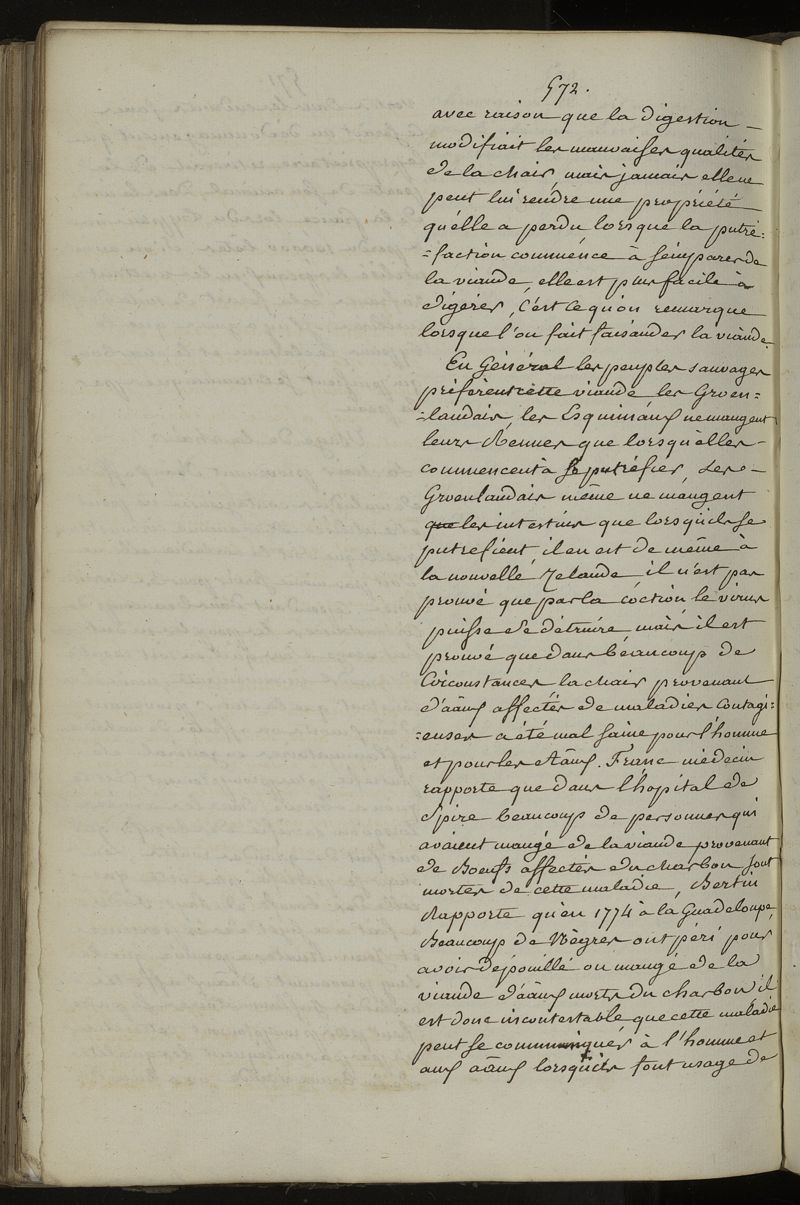 572.
avec raison que la digestion –
modifiait les mauvaises qualités
de la chair, mais jamais elle ne
peut lui rendre une propriété
qu'elle a perdu lorsque la putré=
=faction commence à s'emparer de
la viande, elle est plus facile à
digérer, c'est ce qu'on remarque
lorsque l'on fait faisander la viande.
En Général les peuples sauvages
préfèrent cette viande les Groen=
=landais, les Esquimaux ne mangent
leurs Rennes que lorsqu'elles –
commencent à se putréfier, Les –
Groenlandais même ne mangent
que les intestins que lorsqu'ils se
putrefient, il en est de même à
la nouvelle Zelande il n'est pas
prouvé que par la coction le virus
puisse se détruire mais il est
prouvé que dans beaucoup de
Circonstances la chair provenant
d'aãux affectés de maladies contagi=
=euses a été mal saine pour l'homme
et pour les Aãux. Franc médecin
rapporte que dans l'hopital de
Spire beaucoup de personnes qui
avaient mangé de la viande provenant
de Boeufs affectés du charbon sont
mortes de cette maladie, Bertin
Rapporte qu'en 1774 à la Guadeloupe,
Beaucoup de Nègres ont péri pour
avoir dépouillé ou mangé de la
viande d'aãux morts du charbon il
est donc incontestable que cette maladie
peut se communiquer à l'homme et
aux aãux lorsqu'ils font usage de